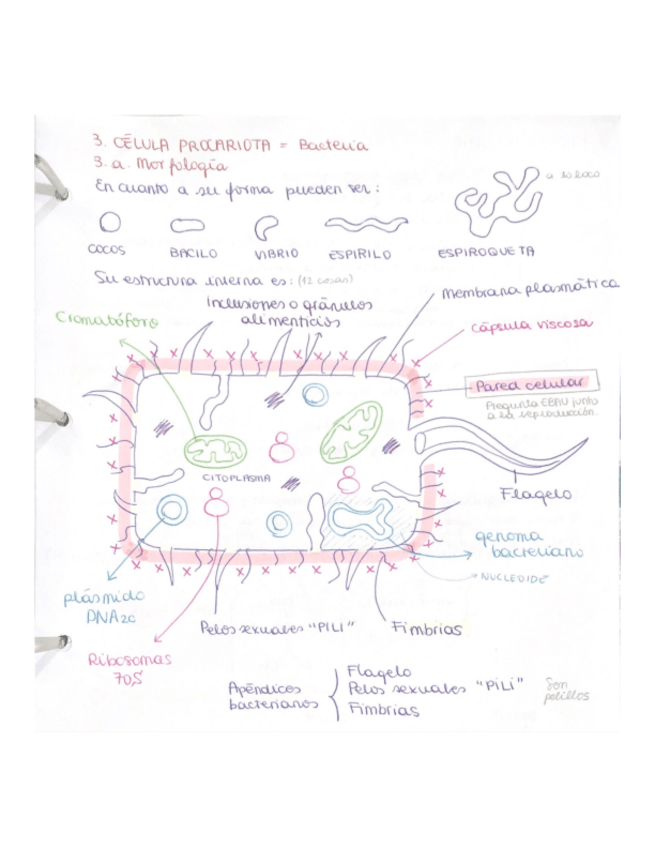 3. CÉLULA PROCARIOTA = Bacteria
3. a. Morfología
En cuanto a su forma pueden ser:
a lo loco
COCOS BACILO VIBRIO ESPIRILO ESPIROQUETA
Su estructura interna es: (12 cosas)
Membrana plasmática
Inclusiones o gránulos
alimenticios
Cromatóforo
Cápsula viscosa
Pared celular
Pregunta EBAU junto
a la reproducción.
CITOPLASMA
Flagelo
genoma
bacteriano
NUCLEOIDE
plásmido
DNA2c
Pelos sexuales "PILI"
Fimbrias
Ribosomas
70S
Apéndices
bacterianos
Flagelo
Pelos sexuales "PILI"
Fimbrias
Son
pelillos